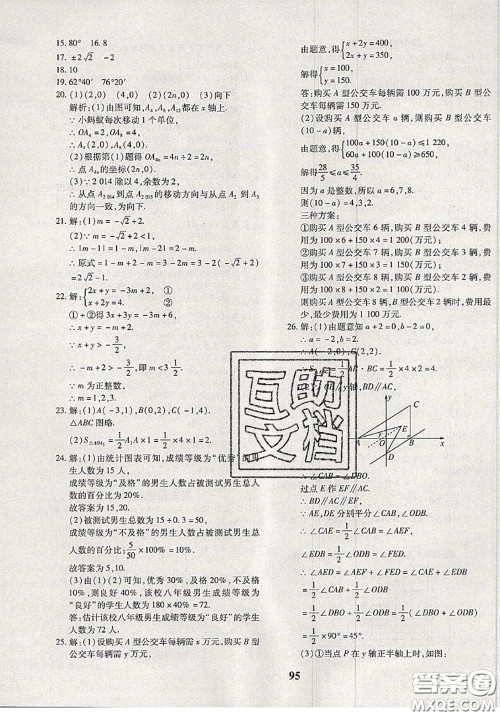 15.80° 16.8
17. ±2√2 -2
18.10
19.62°40′ 76°20′
20.(1)(2,0) (4,0) (2)(2n,0) (3)向下
解析:(1)由图可知,A₄,A₈,A₁₂都在 x 轴上.
∵小蚂蚁每次移动 1 个单位,
∴OA₄=2,OA₈=4.
∴A₄(2,0),A₈(4,0).
(2)根据第(1)题得 OA₄ₙ=4n÷2=2n.
∴点 A₄ₙ的坐标(2n,0).
(3)∵2 014 除以 4,余数为 2,
∴从点 A₂₀₁₄到点 A₂₀₁₅的移动方向与从点 A₂ 到 A₃
的方向一致,为向下.
21.解:(1)m=-√2+2.
(2)∵m=-√2+2<1,
∴|m-11|=1-m,|-m|=m.
∴原式=1-m+m+2(-√2+2)-1-2=
2√2-1.
22.解:{2x+y=-3m+2, ①
x+2y=4. ②
①+②得 3(x+y)=-3m+6,
∴x+y=-m+2.
∵x+y>-3/2,
∴-m+2>-3/2,即 m<3 1/2.
∵m 为正整数,
∴m=1,2,3.
23.解:(1)A(-3,1),B(0,2),C(-1,4).
△ABC 图略.
24.解:(1)由统计图表可知,成绩等级为“优秀”的男
生人数为 15 人,
成绩等级为“及格”的男生人数占被测试男生总人
数的百分比为 20%.
故答案为 15,20.
(2)被测试男生总数为 15÷0.3=50,
成绩等级为“不及格”的男生人数占被测试男生总
人数的百分比:5/50×100%=10%.
故答案为 50,10.
(3)由(1)(2)可知,优秀 30%,及格 20%,不及格
10%,则良好 40%,该校八年级男生成绩等级为
“良好”的学生人数为 180×40%=72.
答:估计该校八年级男生成绩等级为“良好”的学
生人数为 72 人.
25.解:(1)设购买 A 型公交车每辆需 x 万元,购买 B 型
公交车每辆需 y 万元,
由题意,得{x+2y=400,
2x+y=350,
解得{x=100,
y=150.
答:购买 A 型公交车每辆需 100 万元,购买 B 型公
交车每辆需 150 万元.
(2)设购买 A 型公交车 a 辆,则购买 B 型公交车
(10-a)辆,
由题意,得{100a+150(10-a)≤1 200,
60a+100(10-a)≥650,
解得 28/5≤a≤35/4.
因为 a 是整数,所以 a=6,7,8.
则(10-a)=4,3,2.
三种方案:
①购买 A 型公交车 6 辆,购买 B 型公交车 4 辆,费
用为 100×6+150×4=1 200(万元);
②购买 A 型公交车 7 辆,购买 B 型公交车 3 辆,费
用为 100×7+150×3=1 150(万元);
③购买 A 型公交车 8 辆,购买 B 型公交车 2 辆,费
用为 100×8+150×2=1 100(万元).
则购买 A 型公交车 8 辆,B 型公交车 2 辆时,费用最
少,最少费用为 1 100 万元.
26.解:(1)由题意知 a+2=0,b-2=0,
∴a=-2,b=2.
∴A(-2,0),C(2,2).
AB·BC=1/2×4×2=4.
y轴,BD∥AC,
互助
文档
∴∠CAB=∠DBO.
过点 E 作 EF∥AC.
∵BD∥AC,∴EF∥BD.
∵AE,DE 分别平分∠CAB,∠ODB.
∴∠CAE=∠AEF=1/2∠CAB=1/2∠DBO,
∠DEF=∠EDB=1/2∠ODB.
∴∠AED=∠AEF+∠FED=∠CAE+∠EDB=
1/2∠DBO+1/2∠ODB=1/2(∠DBO+∠ODB)
=1/2×90°=45°.
(3)①当点 P 在 y 轴正半轴上时,如图:
95
答案圈
MXQE.COM